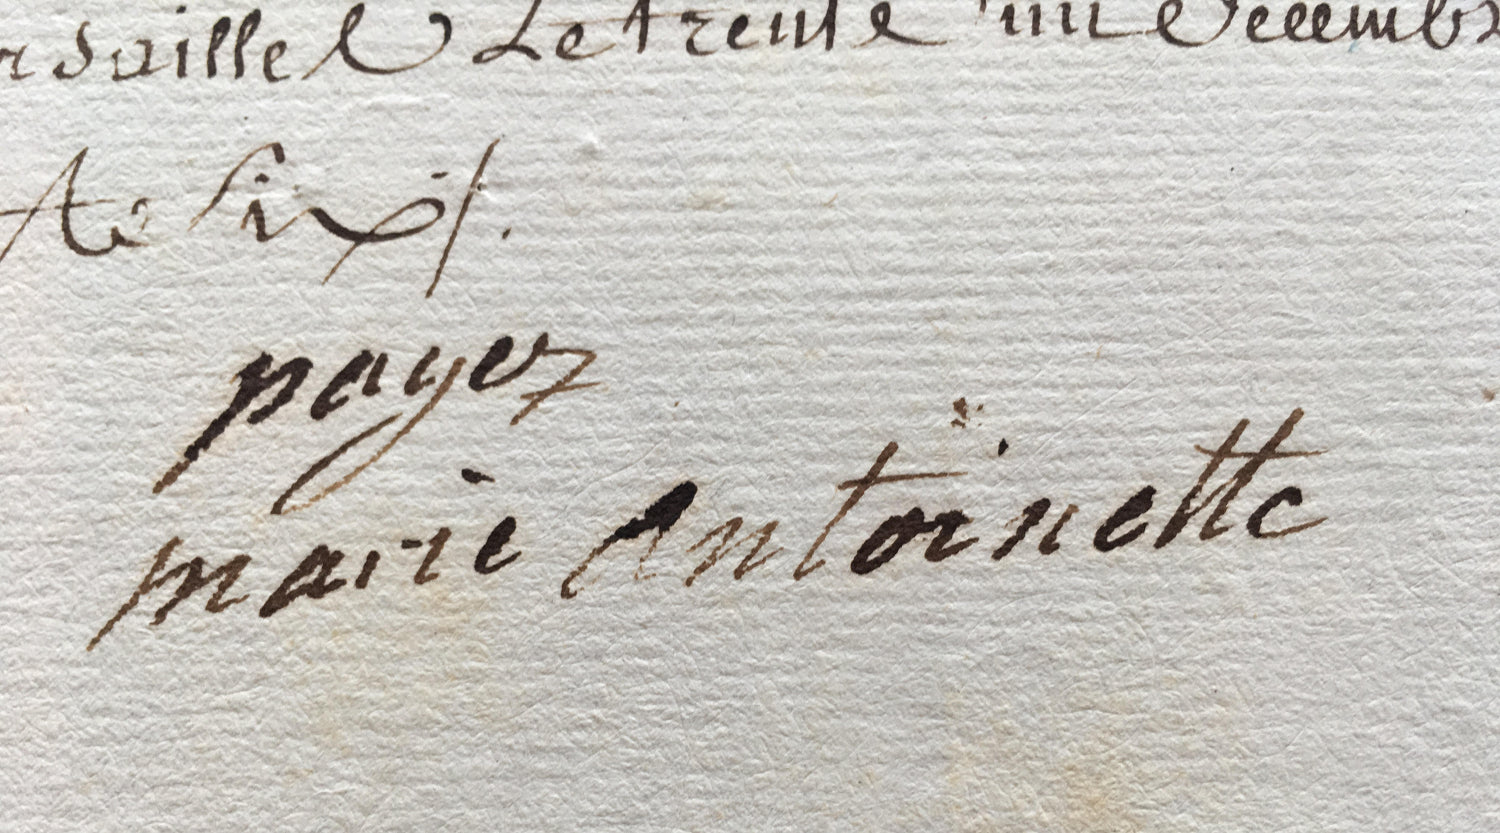 rsaille Le trente un decembr
et six/.
payez
marie antoinette